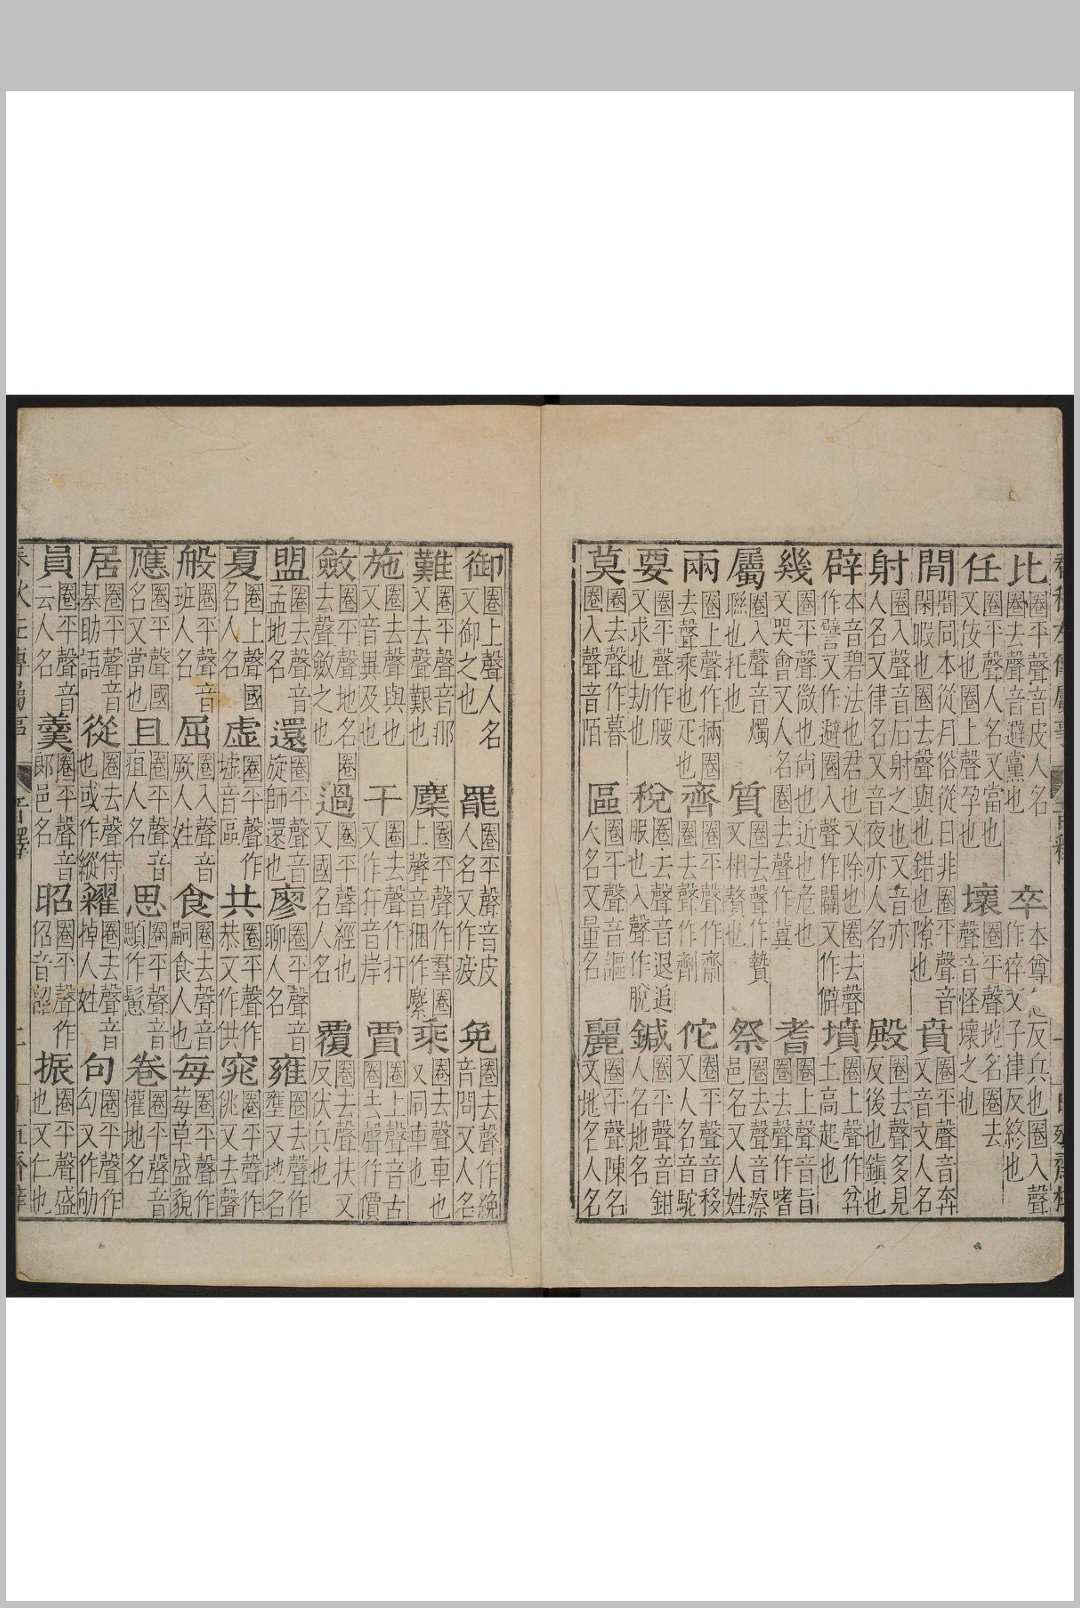 比圈平聲音皮人名圈去聲音避黨也
卒本尊反兵也圈入聲作猝又子律反終也
任圈平聲人名又當也又妝也圈上聲孕也
壞圈平聲地名圈去聲音怪壞之也
閒間同本從月俗從日非閑暇也圈去聲與也錯也隙也
賁圈平聲音奔又音文人名
射圈入聲音石射之也又音亦人名又律名又音夜亦人名
殿圈去聲多見反後也鎮也
辟本音碧法也君也又除也圈去聲作譬又作避圈入聲作闢又作僻
墳圈上聲作坌土高起也
幾圈平聲微也尚也近也危也又哭會又人名圈去聲作冀
耆圈上聲音旨又作嗜
屬圈入聲音燭聯也托也
質圈去聲作贄又相贅也
祭圈去聲音瘵邑名又人姓
兩圈上聲作裲圈去聲乘也疋也
齊圈平聲作齋圈去聲作劑
佗圈平聲音移又人名音駝
要圈平聲作腰又求也劫也
稅圈去聲音退追服也入聲作脫
鍼圈平聲音鉗人名地名
莫圈去聲作暮圈入聲音陌
區圈平聲音謳人名又量名
麗圈平聲陳名又地名人名
御圈上聲人名又御之也
罷圈平聲音皮人名又作疲
免圈去聲作絻音問又人名
難圈平聲音那又去聲艱也
麇圈平聲作羣圈上聲音捆作麇
乘圈去聲車也又同車也
施圈去聲與也又音異及也
干圈去聲作扞又作犴音岸
賈圈上聲音古圈去聲作價
斂圈平聲地名圈去聲斂之也
過圈平聲經也又國名人名
覆圈去聲扶又反伏兵也
盟圈去聲音孟地名
還圈平聲音旋師還也
廖圈平聲音聊人名
雍圈去聲作壅又地名
夏圈上聲國名人名
虛圈平聲作墟音區
共圈平聲作恭又作供
窕圈平聲作佻又去聲
般圈平聲音班人名
屈圈入聲音厥人姓
食圈去聲音嗣食人也
每圈平聲作莓草盛貌
應圈平聲國名又當也
且圈平聲音疽人名
思圈平聲音顋作鬛
卷圈平聲音權地名
居圈平聲音基助語
從圈去聲侍也或作縱
糴圈去聲音掉人姓
句圈平聲作勾又作劬
員圈平聲音云人名
羹圈平聲音郎邑名
昭圈平聲作佋音韶
振圈平聲盛也又仁也